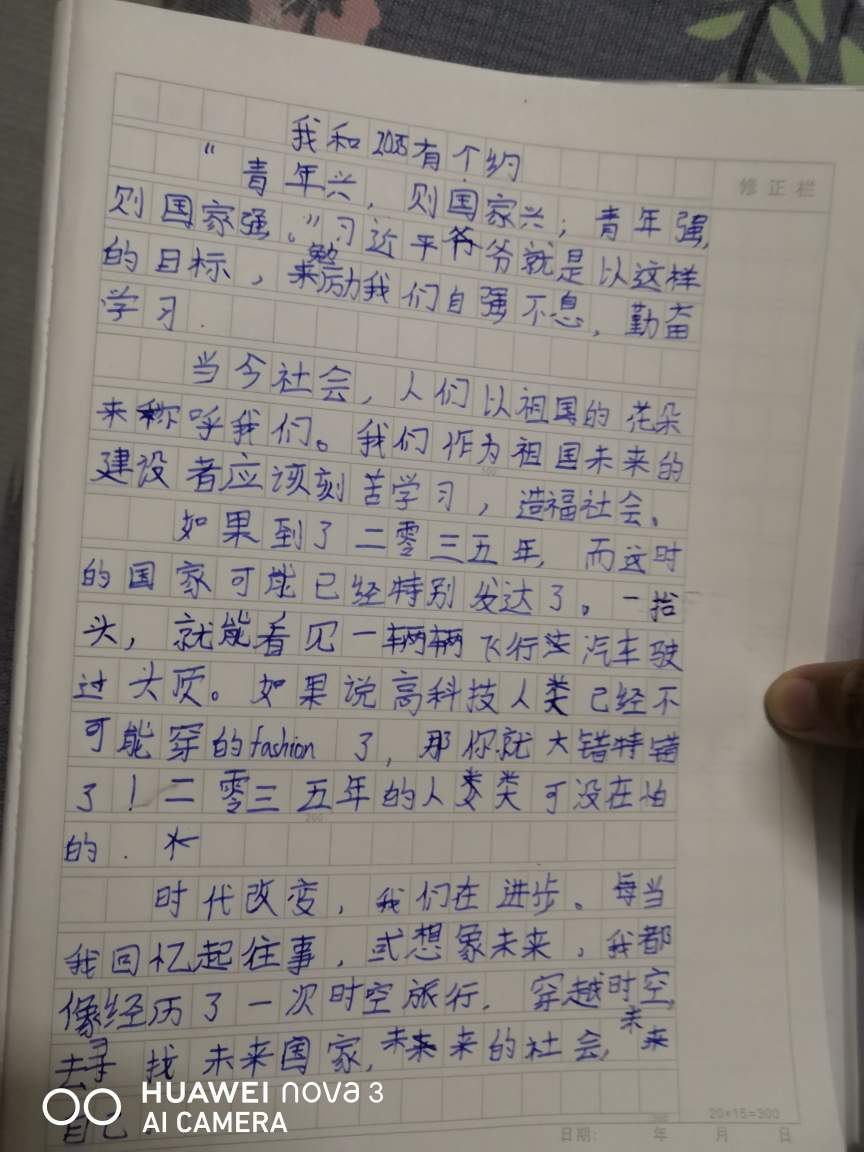 我和2035有个约
“青年兴，则国家兴；青年强，
则国家强。”习近平爷爷就是以这样
的目标，来勉励我们自强不息，勤奋
学习.
当今社会，人们以祖国的花朵
来称呼我们。我们作为祖国未来的
建设者应该刻苦学习，造福社会。
如果到了二零三五年，而这时
的国家可能已经特别发达了。一抬
头，就能看见一辆辆飞行汽车驶
过头顶。如果说高科技人类已经不
可能穿的fashion了，那你就大错特错
了！二零三五年的人类可没在怕
的.
时代改变，我们在进步。每当
我回忆起往事，或想象未来，我都
像经历了一次时空旅行.穿越时空，
去寻找未来国家，未来的社会，未来
自己.
修正栏
100
200
300
20×15=300
日期： 年 月 日
HUAWEI nova 3
AI CAMERA